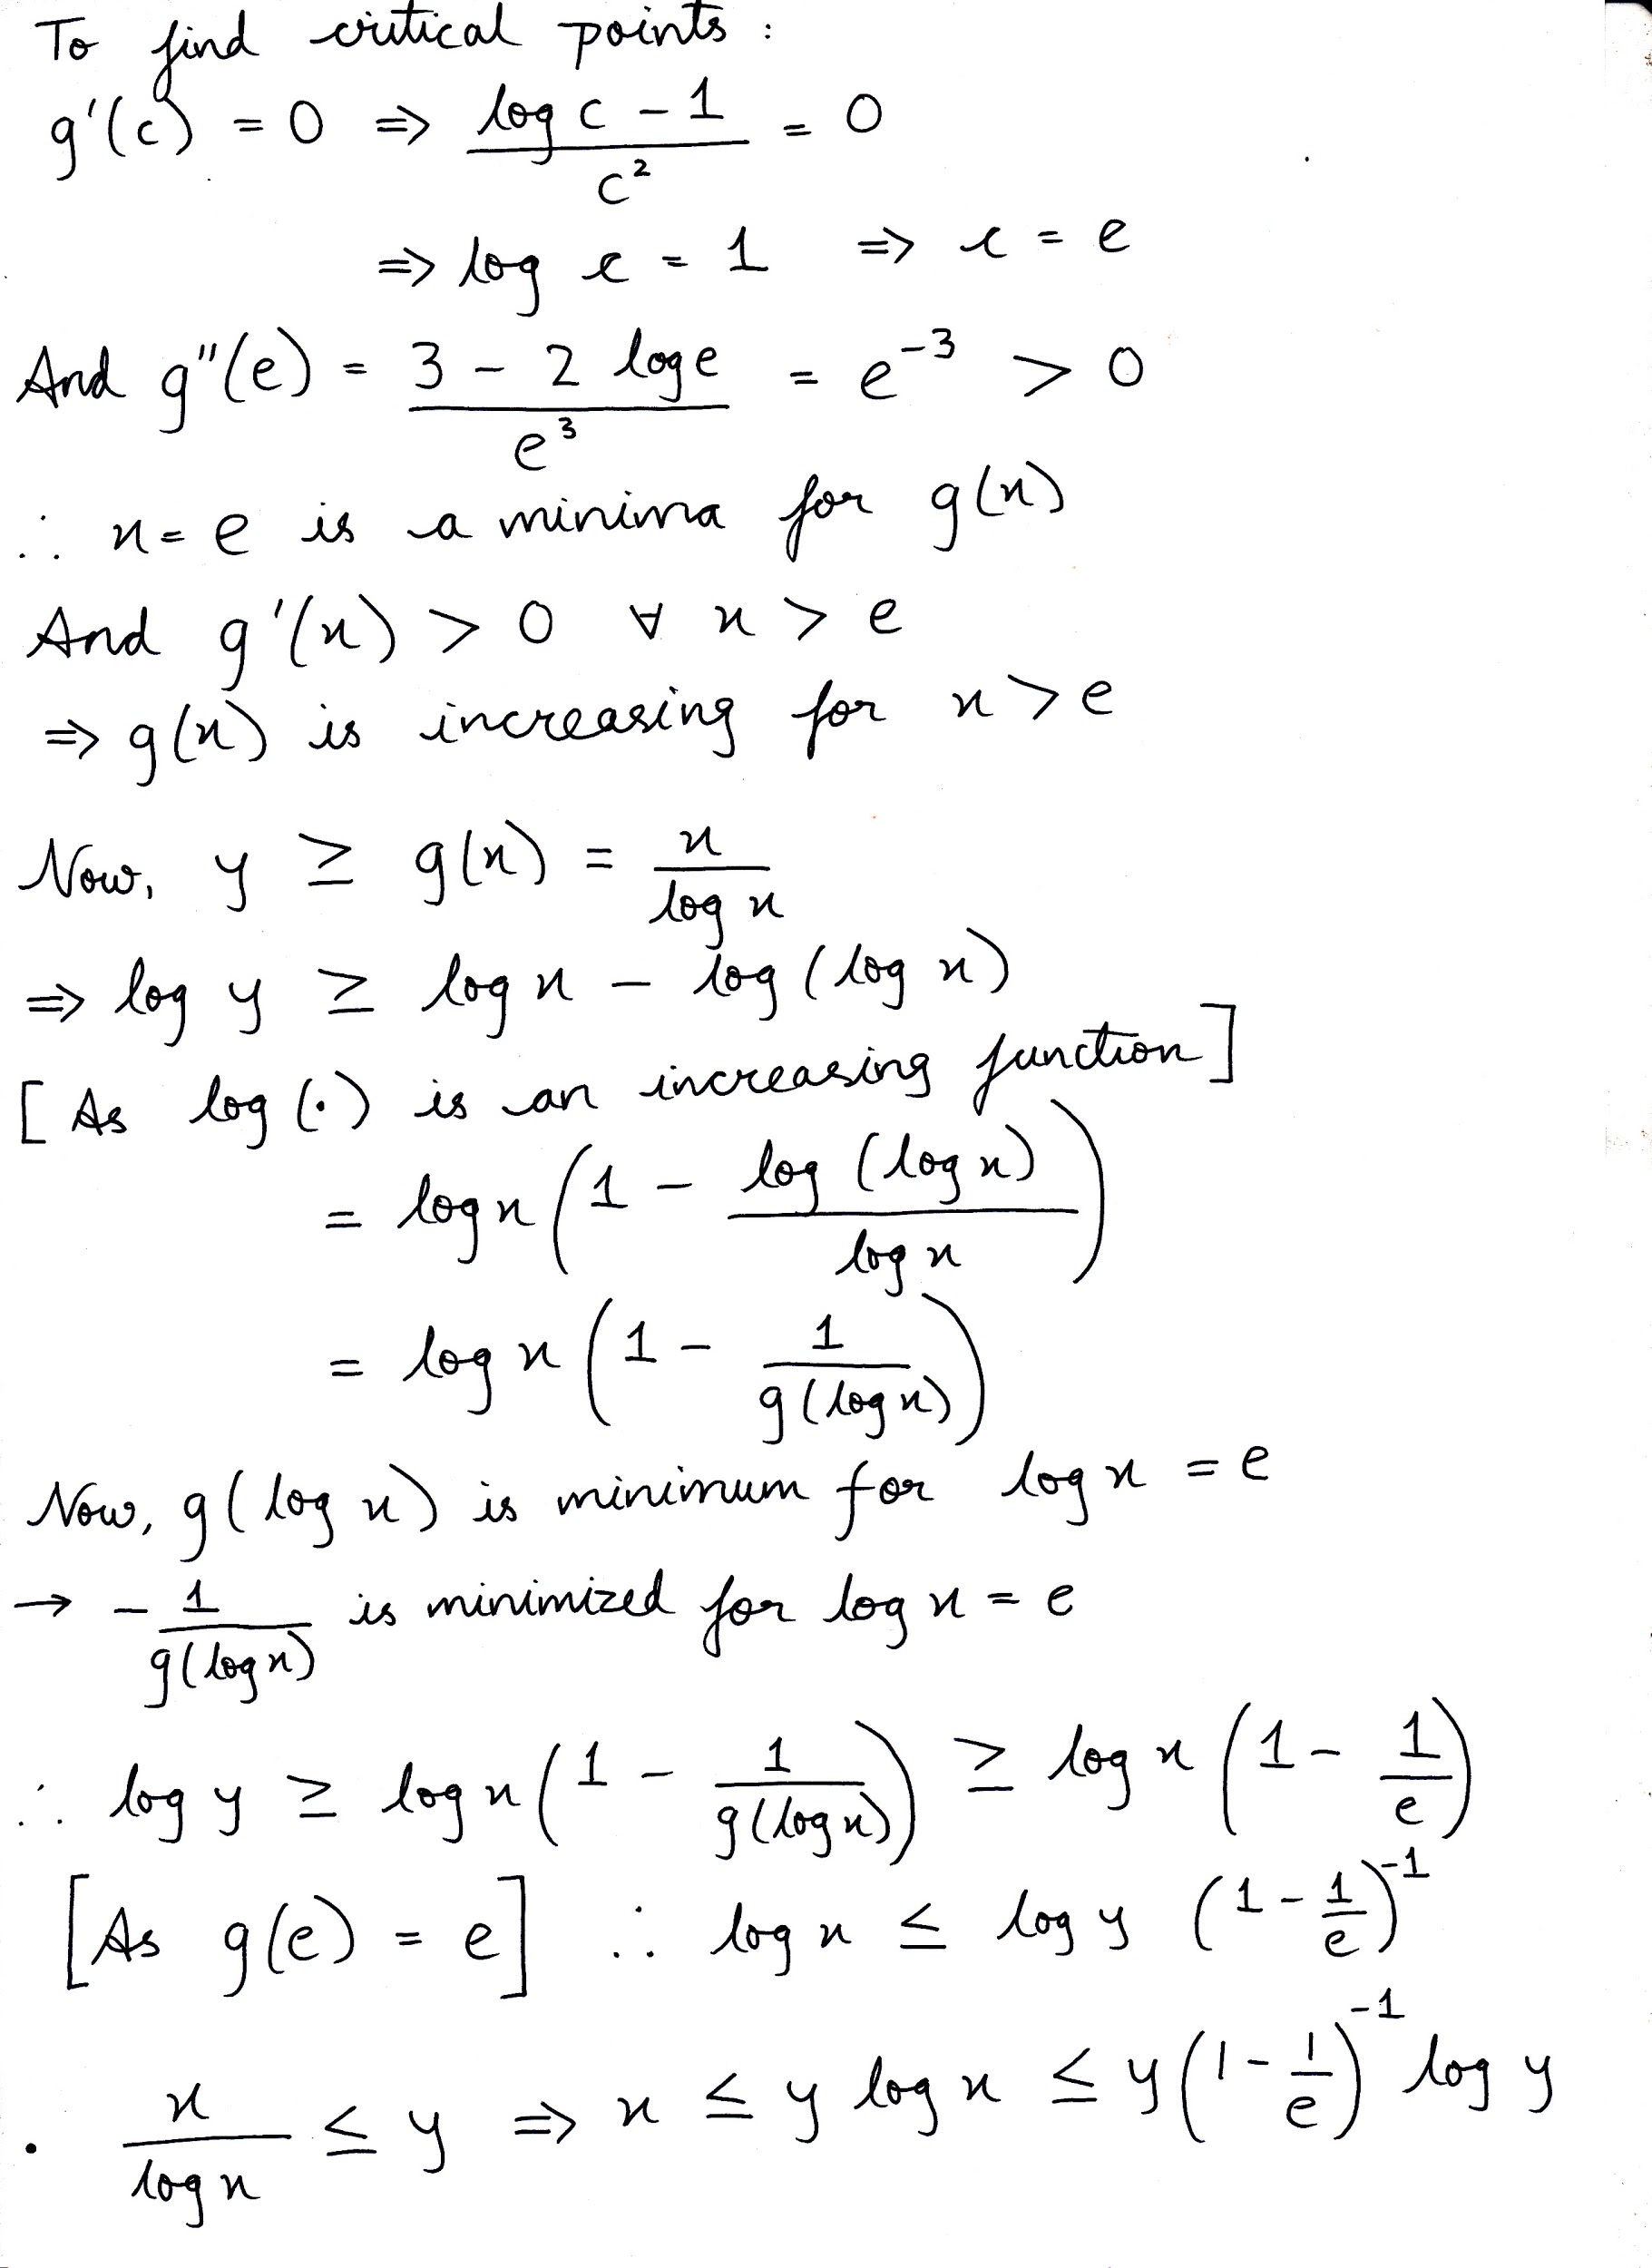 To find critical points :
g'(c) = 0 ⇒ (log c - 1)/c² = 0
⇒ log c = 1 ⇒ c = e
And g"(e) = (3 - 2 log e)/e³ = e⁻³ > 0
∴ x = e is a minima for g(x)
And g'(x) > 0 ∀ x > e
⇒ g(x) is increasing for x > e
Now, y ≥ g(x) = x/log x
⇒ log y ≥ log x - log (log x)
[As log (·) is an increasing function]
= log x (1 - log (log x)/log x)
= log x (1 - 1/g(log x))
Now, g(log x) is minimum for log x = e
→ - 1/g(log x) is minimized for log x = e
∴ log y ≥ log x (1 - 1/g(log x)) ≥ log x (1 - 1/e)
[As g(e) = e] ∴ log x ≤ log y (1 - 1/e)⁻¹
· x/log x ≤ y ⇒ x ≤ y log x ≤ y (1 - 1/e)⁻¹ log y